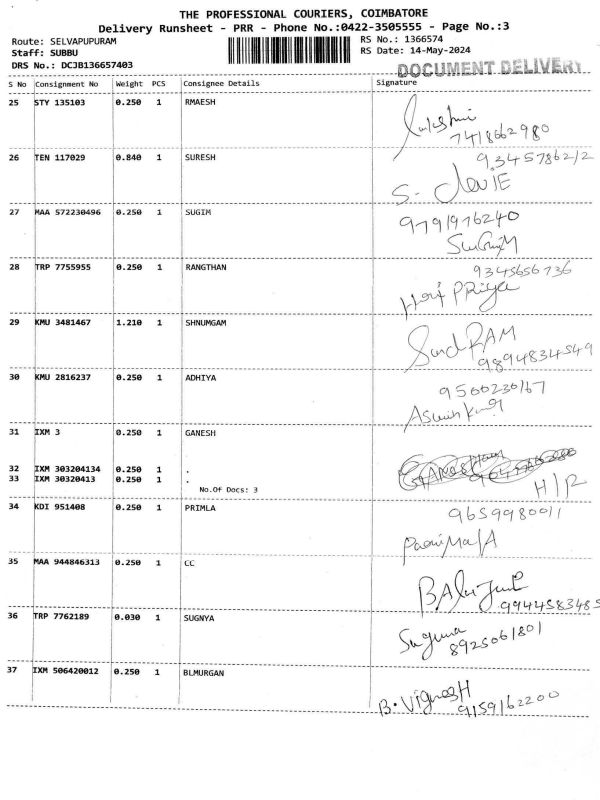 THE PROFESSIONAL COURIERS, COIMBATORE
Delivery Runsheet - PRR - Phone No.:0422-3505555 - Page No.:3
Route: SELVAPUPURAM RS No.: 1366574
Staff: SUBBU RS Date: 14-May-2024
DRS No.: DCJB136657403
DOCUMENT DELIVERY
S No Consignment No Weight PCS Consignee Details Signature
25 STY 135103 0.250 1 RMAESH
7418662980
26 TEN 117029 0.840 1 SURESH 9345786212
S-
27 MAA 572230496 0.250 1 SUGIM 9791976240
SuGiM
28 TRP 7755955 0.250 1 RANGTHAN 9345656736
Hari PRiya
29 KMU 3481467 1.210 1 SHNUMGAM RAM
9894834549
30 KMU 2816237 0.250 1 ADHIYA 9500230167
31 IXM 3 0.250 1 GANESH
32 IXM 303204134 0.250 1 .
33 IXM 30320413 0.250 1 .
No.Of Docs: 3 H/R
34 KDI 951408 0.250 1 PRIMLA 9659980011
35 MAA 944846313 0.250 1 CC
9944583485
36 TRP 7762189 0.030 1 SUGNYA Suguna
8925061801
37 IXM 506420012 0.250 1 BLMURGAN
B. VigneSH
9159162200